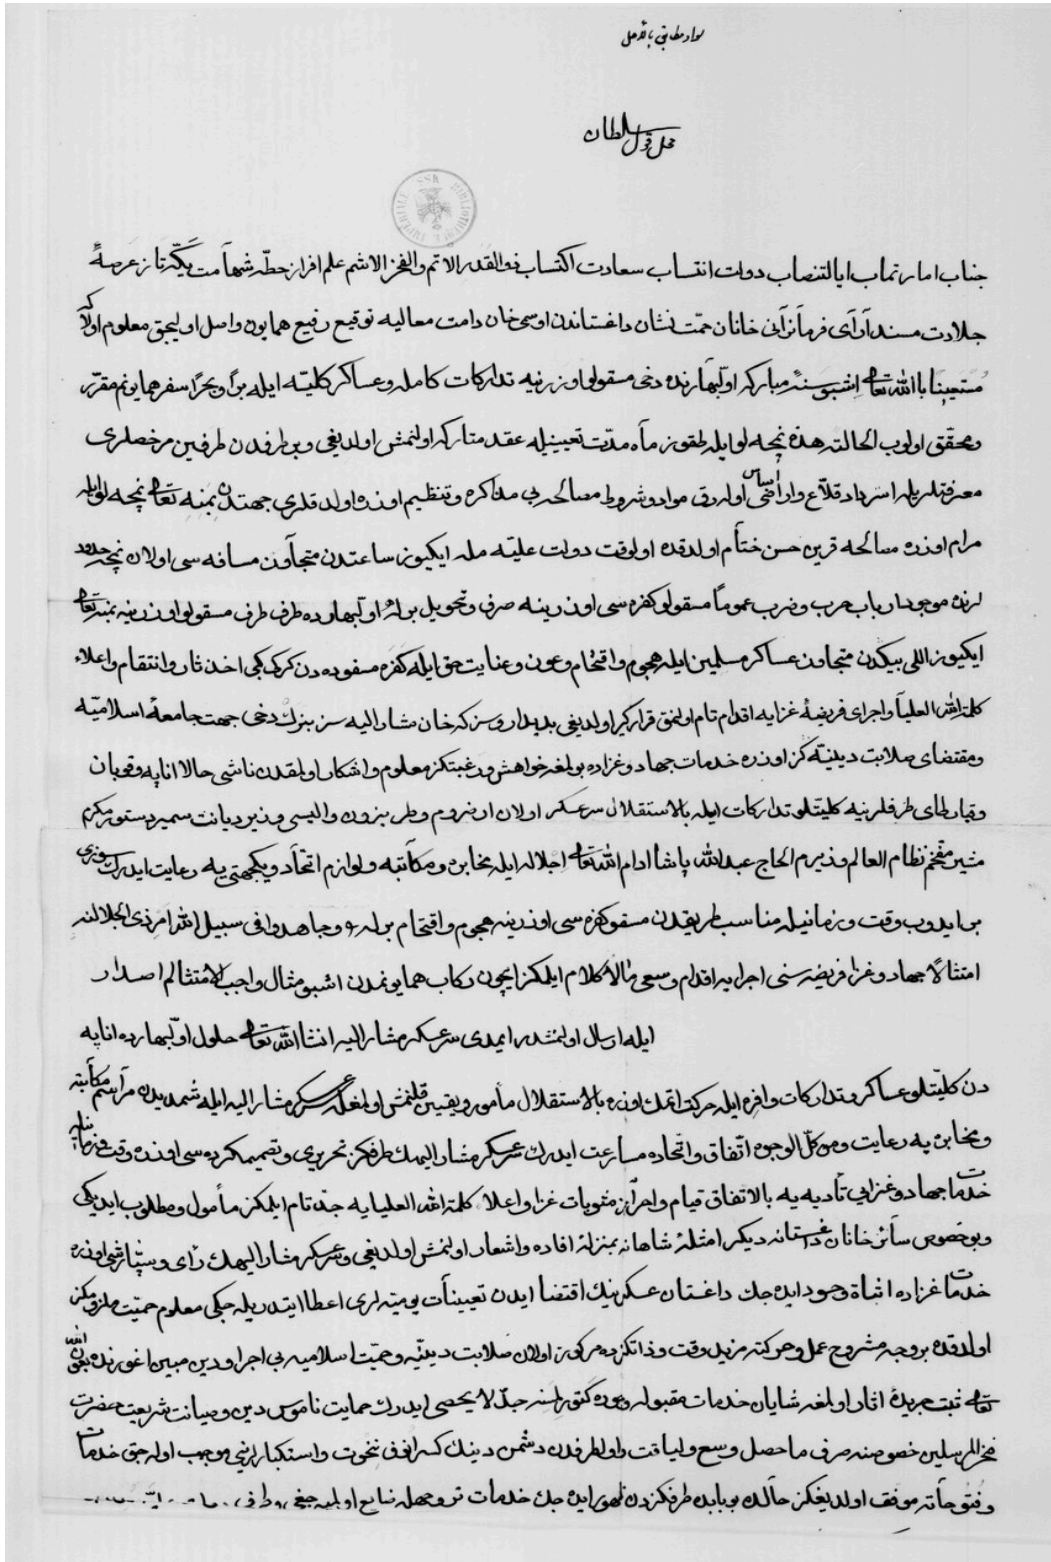 سواد مطابق باصل
محل قول سلطان
جناب امارتمآب ایالتنصاب دولت انتساب سعادت اکتساب ذو القدر الاتم والفخر الاشم علم افراز خطهٔ شهامت یکه‌تاز عرصهٔ
جلادت مسند آرای فرمانرانی خانان همت نشان داغستاندن اوسمی خان دامت معالیه توقیع رفیع همایون واصل اولیجق معلوم اولا که
مستعینا بالله تعالی اشبو سنهٔ مبارکه اولبهارنده دخی مسقولو اوزرینه تدارکات کامله وعساکر کلیه ایله براً وبحراً سفر همایونم مقرر
ومحقق اولوب الحالة هذه نیچه لوایله طقوز ماه مدت تعیینیله عقد متارکه اولنمش اولدیغی وبر طرفدن طرفین مرخصلری
معرفتلریله استرداد قلاع واراضی اساس اوله‌رق مواد وشروط مصالحه‌یی مذاکره وتنظیم اوزره اولدقلری جهتدن بمنه تعالی نیچه لوایله
مرام اوزره مصالحه قرین حسن ختام اولدقده اولوقت دولت علیه مله ایکیوز ساعتدن متجاوز مسافه‌سی اولان نیچه حدود
لرنده موجود ارباب حرب وضرب عموماً مسقولو کفره‌سی اوزرینه صرف وتحویل برله اولبهارده طرف طرف مسقولو اوزرینه بمنه تعالی
ایکیوز اللی بیکدن متجاوز عساکر مسلمین ایله هجوم واقتحام وعون وعنایت حق ایله کفره مسفوره‌دن کرک کبی اخذ ثار وانتقام واعلاء
کلمة الله العلیا واجرای فریضهٔ غزایه اقدام تام اولنمق قرارکیر اولدیغی بدیدار وسز که خان مشار الیه سز سزک دخی جهت جامعهٔ اسلامیه
ومقتضای صلابت دینیه‌کز اوزره خدمات جهاد وغزاده بولمغه خواهش ورغبتکز معلوم واشکار اولمقدن ناشی حالا اناپه وقوبان
وقبارطای طرفلرینه کلیتلو تدارکات ایله بالاستقلال سرعسکر اولان ارضروم وطربزون والیسی وزیر دیانت سمیر دستور مکرم
مشیر مفخم نظام العالم وزیرم الحاج عبدالله پاشا ادام الله تعالی اجلاله ایله مخابره ومکاتبه ولوازم اتحاد ویکجهتی‌یه رعایت ایدرک
بر ایدوب وقت وزمانیله مناسب طریقدن مسقو کفره‌سی اوزرینه هجوم واقتحام برله وجاهدوا فی سبیل الله امر ذی الجلالنه
امتثالاً جهاد وغزا فریضه‌سنی اجرایه اقدام وسعی مالا کلام ایلمکز ایچون رکاب همایونمدن اشبو مثال واجب الامتثالم اصدار
ایله ارسال اولنمشدر ایمدی سرعسکر مشار الیه انشاالله تعالی حلول اولبهارده اناپه
دن کلیتلو عساکر وتدارکات وافره ایله حرکت اتمک اوزره بالاستقلال مأمور وتعیین قلنمش اولمغله سرعسکر مشار الیه ایله شمدیدن مراسم مکاتبه
ومخابره‌یه رعایت ومن کل الوجوه اتفاق واتحاده مسارعت ایدرک سرعسکر مشار الیهک طرفکز تحریری وتصمیمکرده‌سی اوزره وقت وزمانیله
خدمات جهاد وغزایی تأدیه‌یه بالاتفاق قیام واحراز مثوبات غزا واعلا کلمة الله العلیایه جد تام ایلمکز مأمول ومطلوب ایدیکی
وبو خصوص سائر خانان داغستانه دیکر امثلهٔ شاهانه‌م منزله افاده واشعار اولنمش اولدیغی وسرعسکر مشار الیهک رأی وسپارشی اوزره
خدمات غزاده اثبات وجود ایده‌جک داغستان عسکرینک اقتضا ایدن تعیینات یومیه‌لری اعطا ایتدریله‌جکی معلوم حمیت ملزومکز
اولدقده بر وجه مشروح عمل وحرکته مزید دقت وذاتکزده مرکوز اولان صلابت دینیه وحمیت اسلامیه‌یی اجرا ودین مبین اغورنده بعون الله
تعالی ثبت جریدهٔ اثار اولمغه شایان خدمات مقبوله وجوده کتورلمسنه جد لا یحصی ایدرک حمایت ناموس دین وصیانت شریعت حضرت
فخر المرسلین خصوصنه صرف ماحصل وسع ولیاقت واولطرفدن دشمن دینک کسر انف نخوت واستکبارینی موجب اوله‌جق خدمات
وفتوحاته موفق اولدیغکز حالده بو بابده طرفکزدن ظهور ایده‌جک خدمات نر وجهله ضایع اولمیه‌جغی